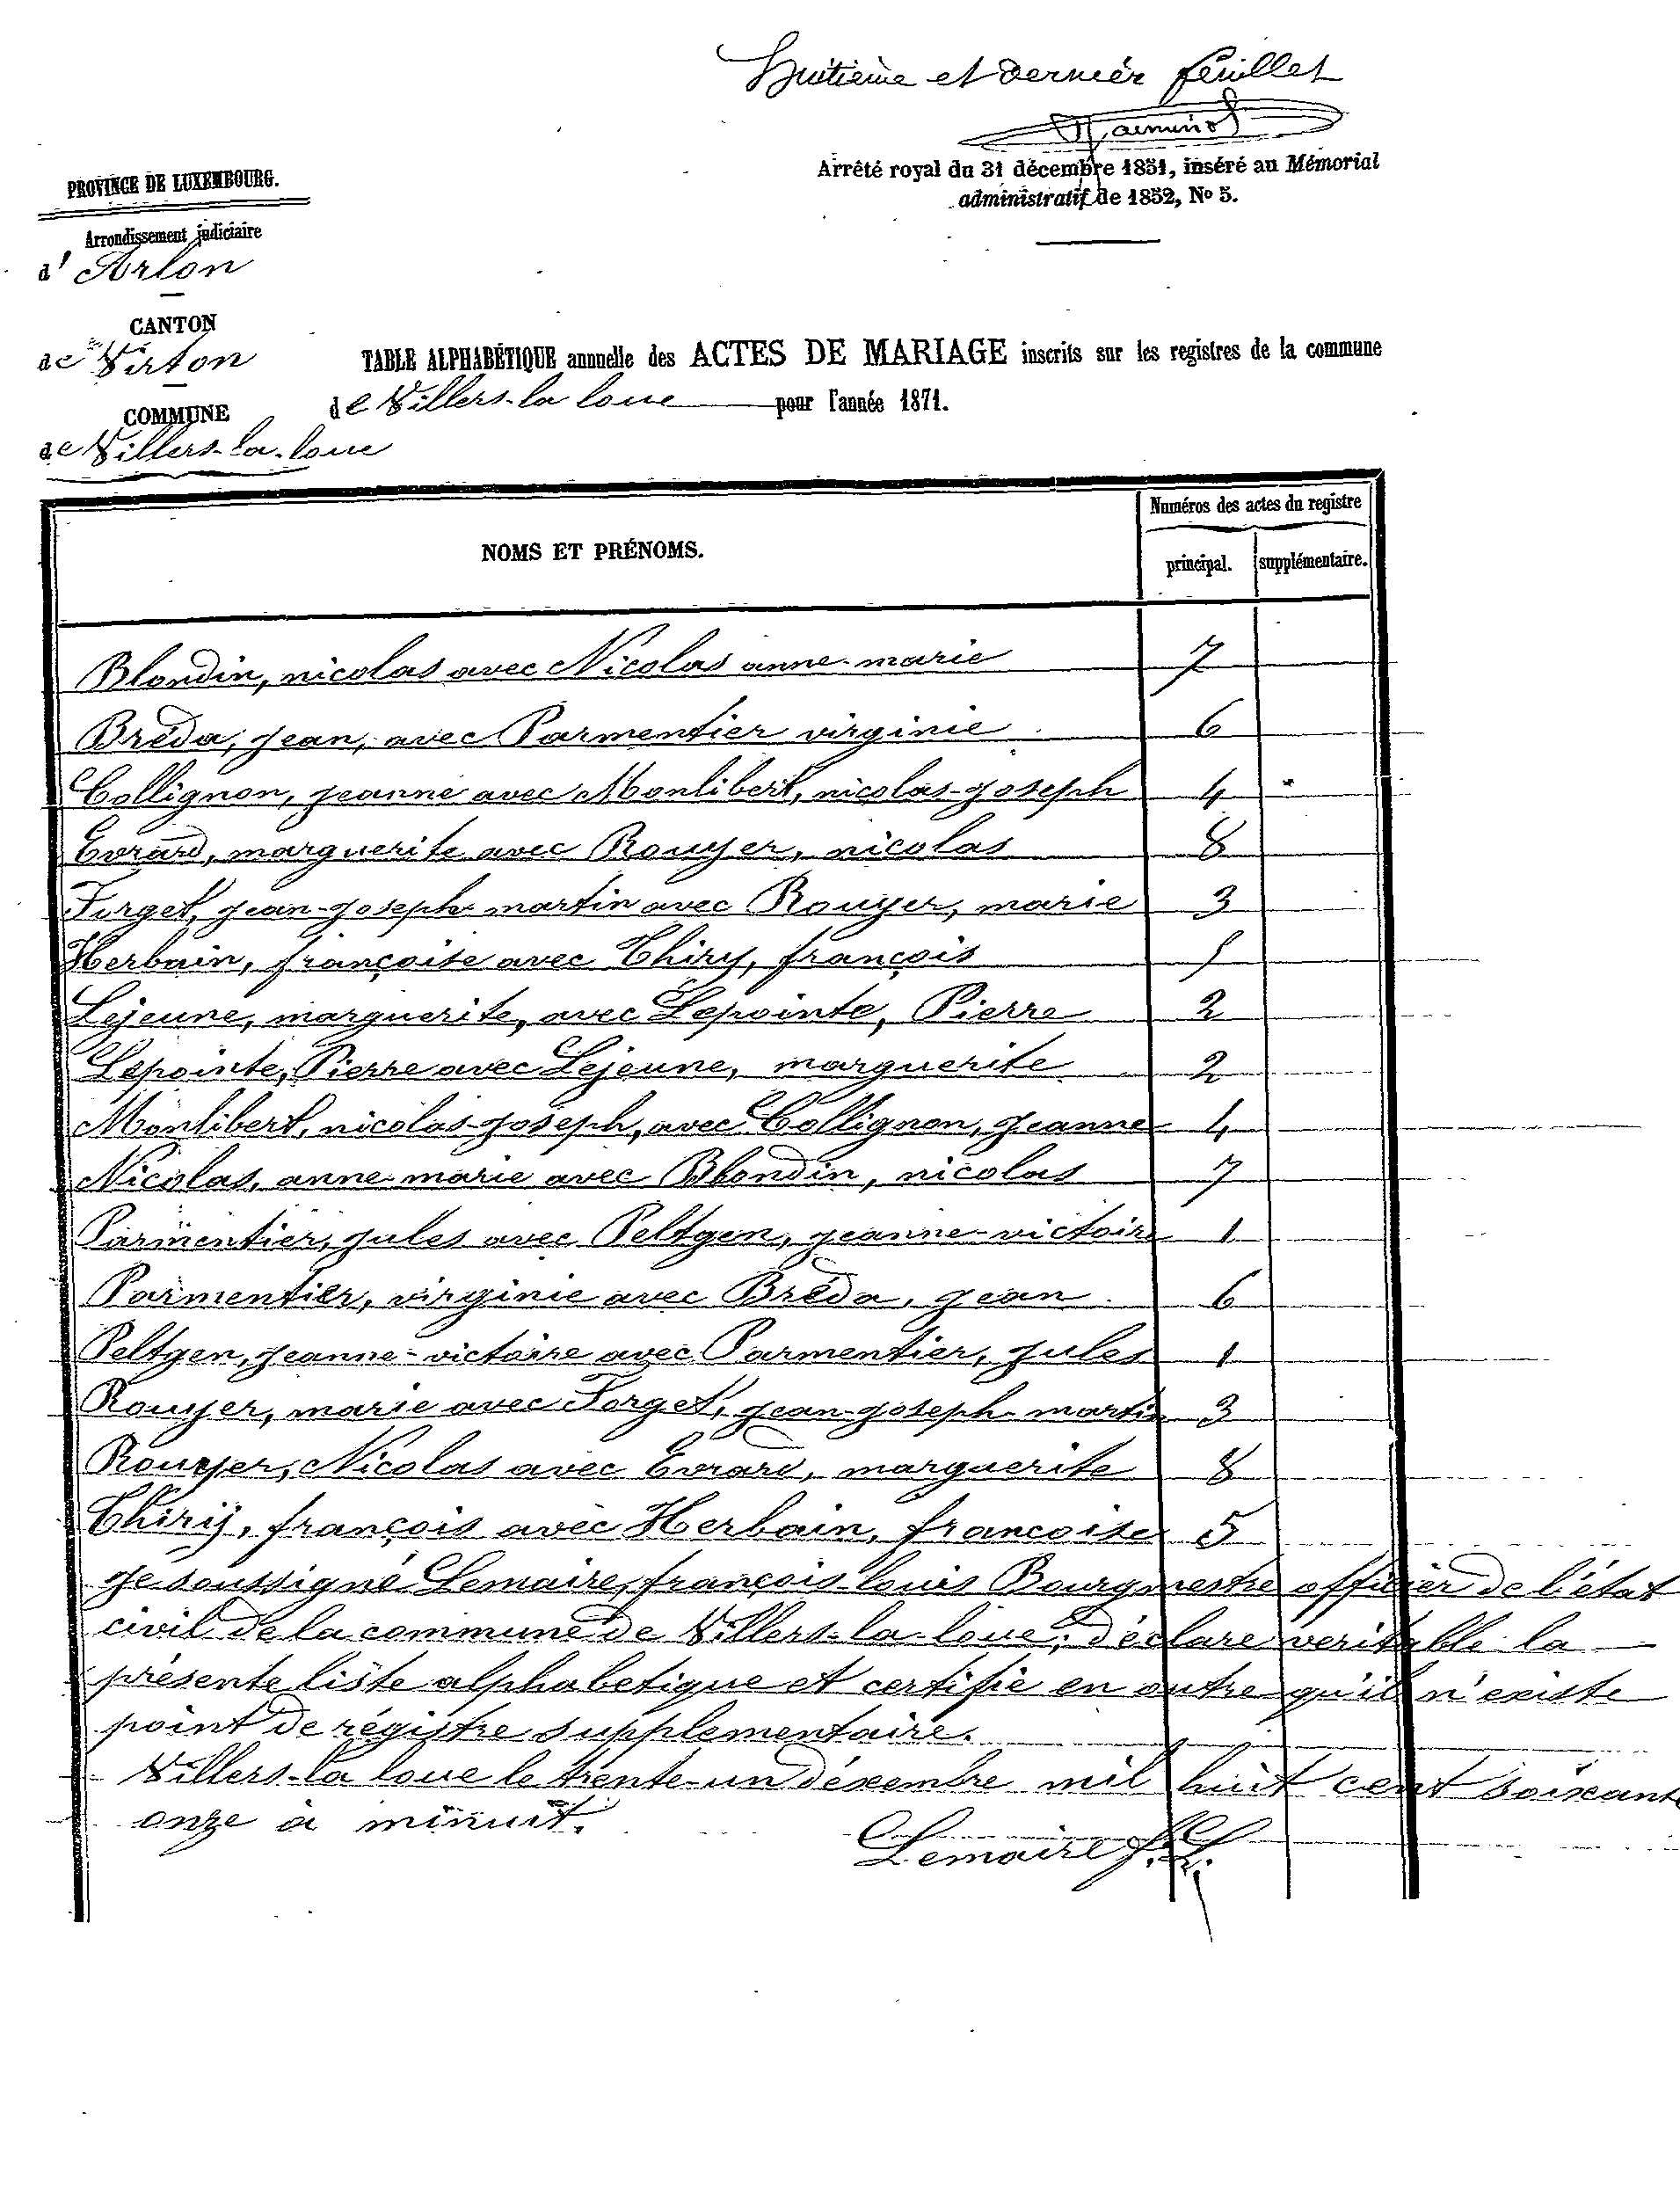 Huitième et dernier feuillet
PROVINCE DE LUXEMBOURG.
Arrondissement judiciaire
d'Arlon
CANTON
de Virton
COMMUNE
de Villers-la-loue
Arrêté royal du 31 décembre 1851, inséré au Mémorial
administratif de 1852, No 5.
TABLE ALPHABÉTIQUE annuelle des ACTES DE MARIAGE inscrits sur les registres de la commune
de Villers-la loue pour l'année 1871.
NOMS ET PRÉNOMS.
Numéros des actes du registre
principal. supplémentaire.
Blondin, nicolas avec Nicolas anne-marie 7
Bréda, jean, avec Parmentier virginie 6
Collignon, jeanne avec Monlibert, nicolas-joseph 4
Evrard, marguerite avec Rouyer, nicolas 8
Forget, jean-joseph martin avec Rouyer, marie 3
Herbain, françoise avec Thiry, françois 5
Lejeune, marguerite, avec Lepointe, Pierre 2
Lepointe, Pierre avec Lejeune, marguerite 2
Monlibert, nicolas-joseph, avec Collignon, jeanne 4
Nicolas, anne-marie avec Blondin, nicolas 7
Parmentier, jules avec Peltgen, jeanne-victoire 1
Parmentier, virginie avec Bréda, jean 6
Peltgen, jeanne-victoire avec Parmentier, jules 1
Rouyer, marie avec Forget, jean-joseph-martin 3
Rouyer, Nicolas avec Evrard, marguerite 8
Thiry, françois avec Herbain, francoise 5
je soussigné Lemaire, françois-louis Bourgmestre officier de l'état
civil de la commune de Villers-la-loue, déclare veritable la
présente liste alphabetique et certifie en outre qu'il n'existe
point de régistre supplementaire.
Villers-la loue le trente-un décembre mil huit cent soixante
onze à minuit.
Lemaire f. L.